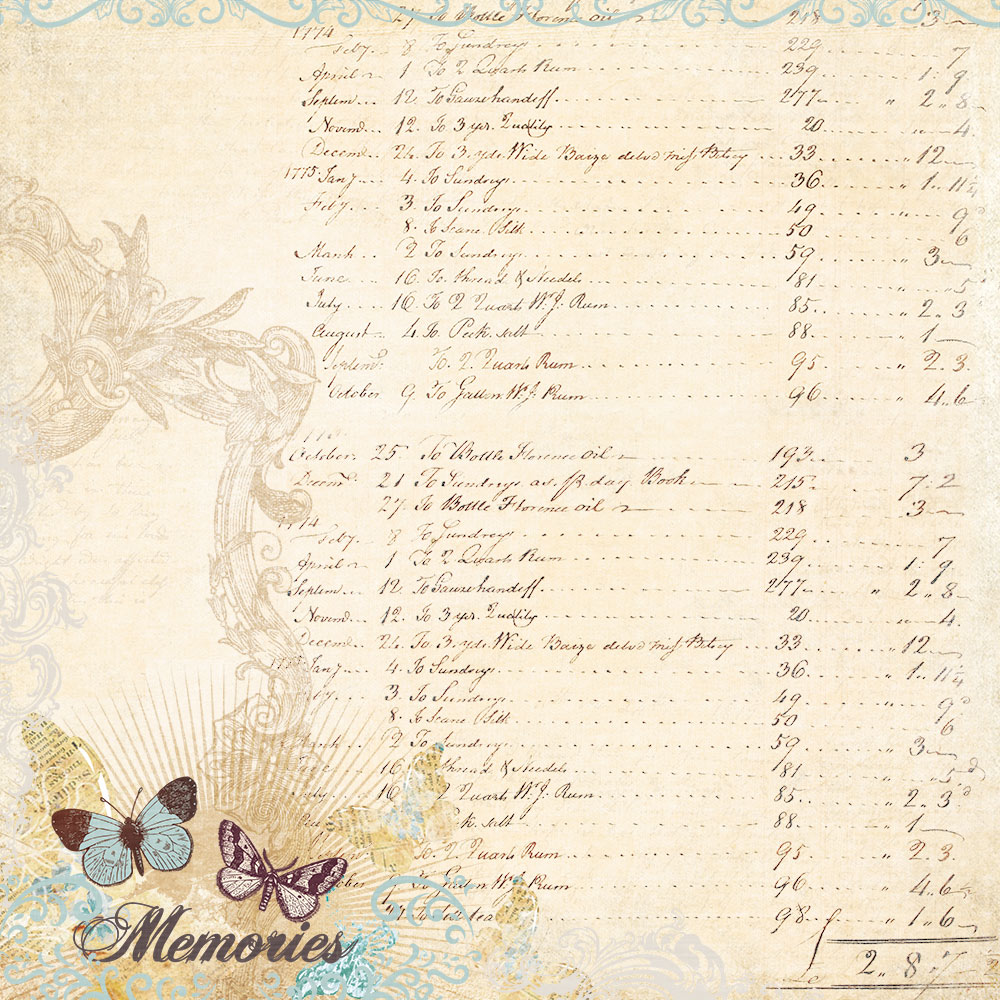 27 To Bottle Florence oil 218 3
1774
Feby. 8 To Sundrys 229 7
April 1 To 2 Quarts Rum 239 1: 9
Septem 12. To Gauze handkff 277 " 2 " 8
Novemb. 12. To 3 yds. Quality 20 " 4.
Decemb. 24. To 3. yds. Wide Baize deld Miss Betsey 33 " 12
1775 Jany 4. To Sundrys 36 " 1 " 11¼
Feby 3. To Sundrys 49 " 9
8. To Scane Silk 50 6
March 2 To Sundrys 59 3
June 16 To thread & Needels 81 " 5
July 16 To 2 Quarts W. J. Rum 85 " 2 " 3
August 4. To Peck salt 88 " 1
Septemr. To 2 Quarts Rum 95 " 2. 3.
October 9. To Gallon W. J. Rum 96 " 4 " 6
October 25 To Bottle Florence oil 193 3
Decemr. 21 To Sundrys as pr. day Book 215 7: 2
27 To Bottle Florence oil 218 3
1774
Feby. 8 To Sundrys 229 7
April 1 To 2 Quarts Rum 239 1: 9
Septem 12. To Gauze handkff 277 " 2 " 8
Novemb. 12. To 3 yds. Quality 20 " 4
Decemb. 24. To 3. yds. Wide Baize deld Miss Betsey 33 " 12
1775 Jany 4. To Sundrys 36 " 1 " 11¼
3. To Sundrys 49 " 9
8. To Scane Silk 50 6
2 To Sundrys 59 3
16 thread & Needels 81 " 5
16 2 Quarts W. J. Rum 85 " 2 " 3
salt 88 " 1
To. 2 Quarts Rum 95 " 2 3.
W. J. Rum 96 " 4 " 6
98 " 1 " 6
2 " 8 " 7
Memories